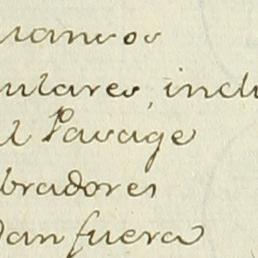 uanvos
ulares, inclu
l Pavage
bradores
dan fuera